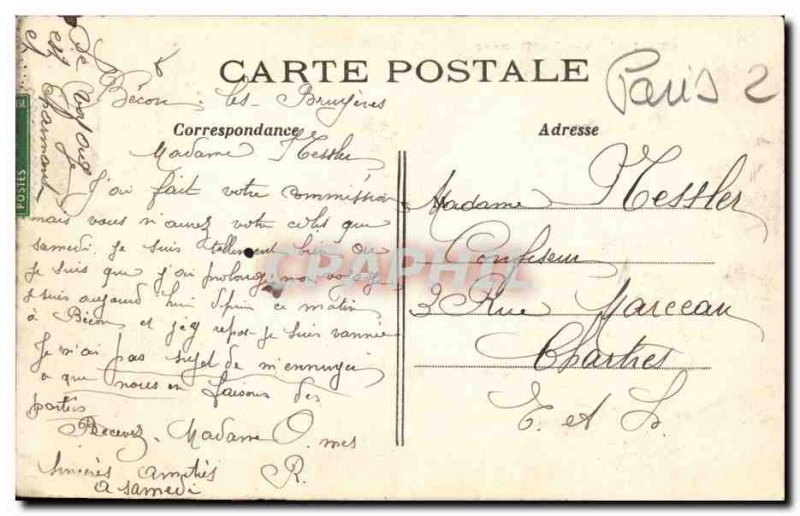 CARTE POSTALE
Paris 2
Bécon les Bruyères
Correspondance
Adresse
Madame Hessler
J'ai fait votre commission
mais vous n'aurez votre colis que
samedi. Je suis tellement bien où
je suis que j'ai prolongé mon voyage
je suis aujourd'hui depuis ce matin
à Bécon et j'y repose je suis vannée
Je n'ai pas sujet de m'ennuyer
a que nous en faisons des
parties
Recevez Madame O. mes
sincères amitiés R.
a samedi
Madame Hessler
Confiseur
3 Rue Marceau
Chartres
E. et L.
est
et charmant
POSTES
CPAPHIL